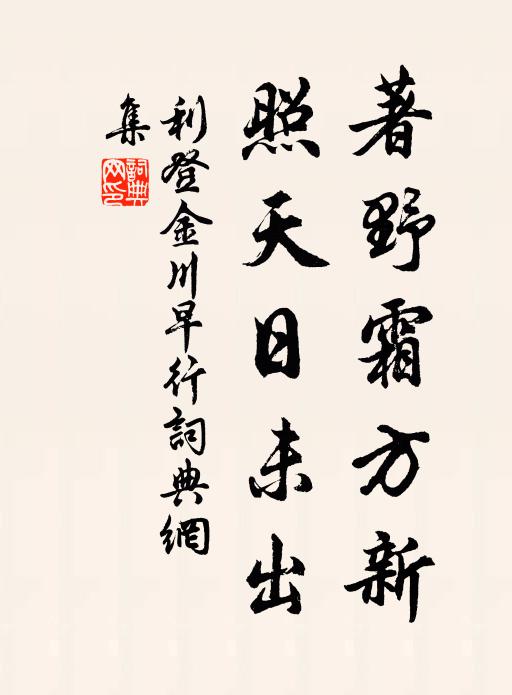 著野霜方新
照天日未出
利登金川早行詞典網
集
詞典網印